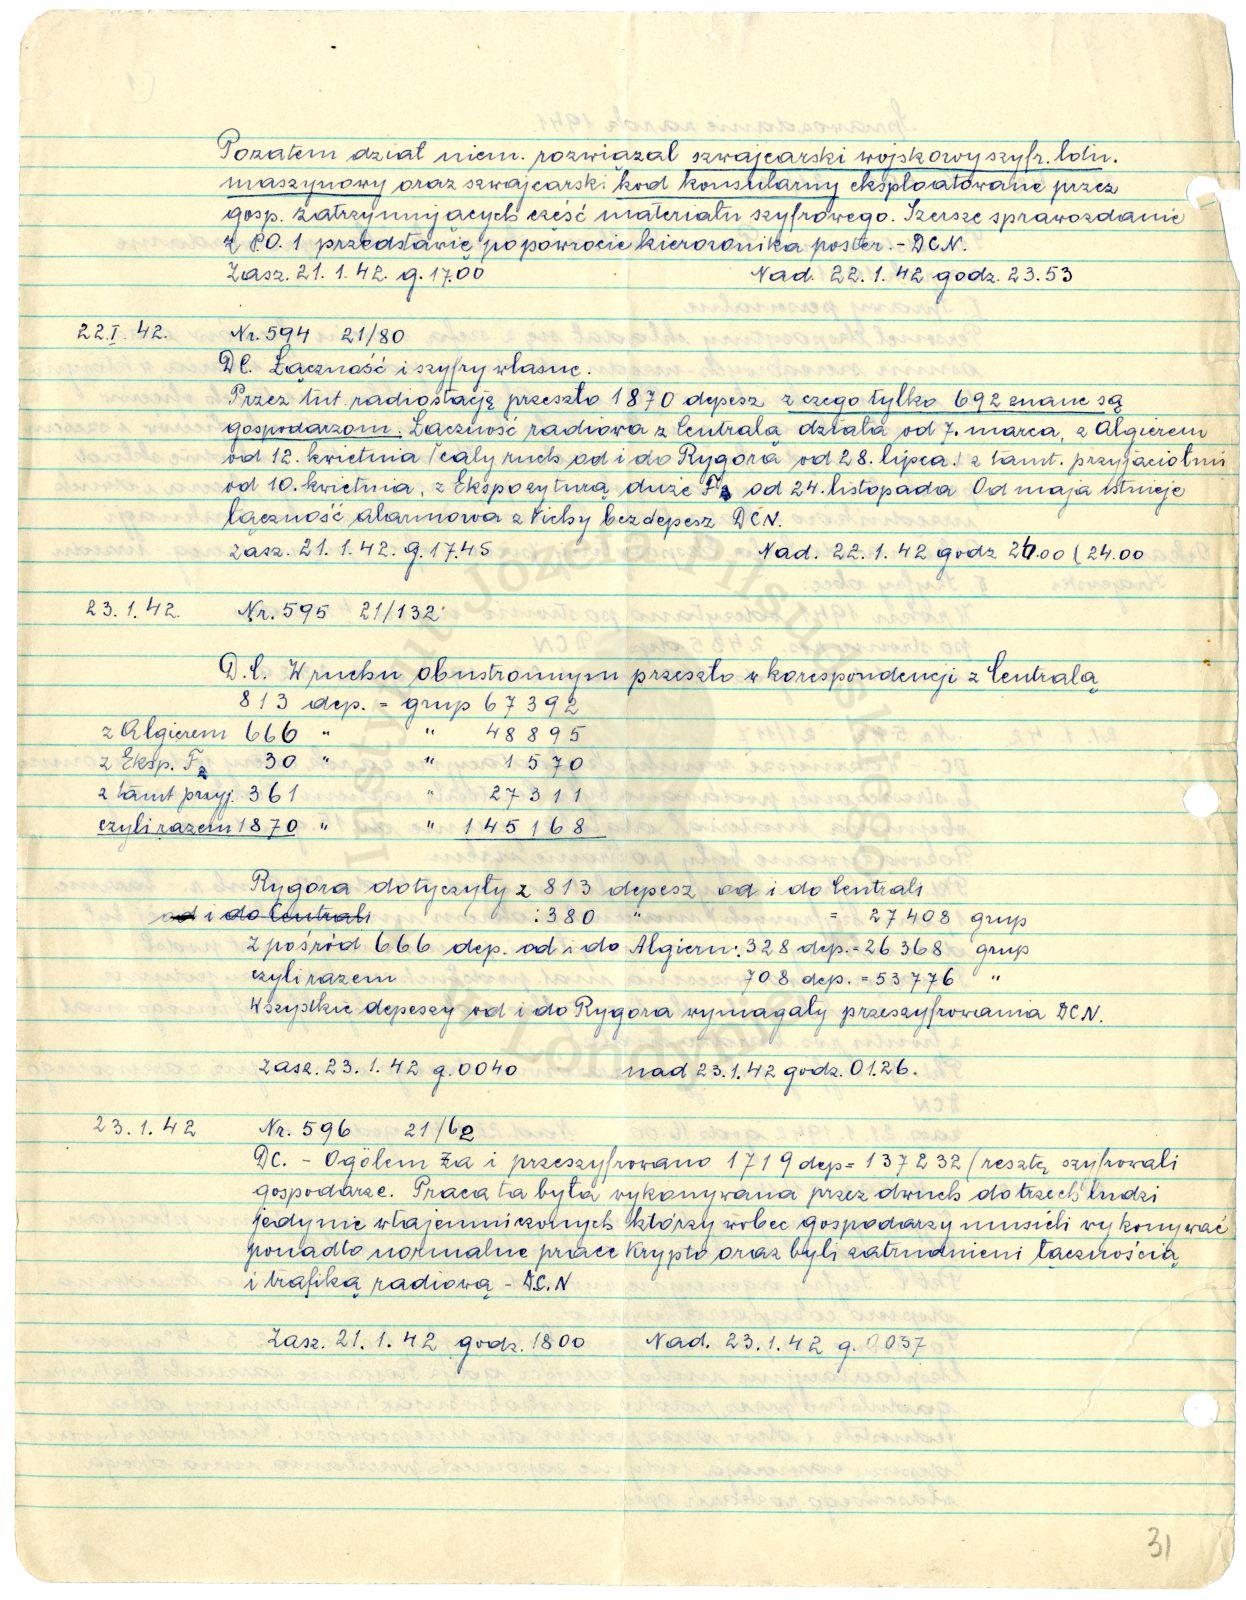 Pozatem dział niem. rozwiazał szwajcarski wojskowy szyfr.
maszynowy oraz szwajcarski kod konsularny eksploatowane przez
gosp. zatrzymujacych cześć materiału szyfrowego. Szersze sprawozdanie
z P.O. 1 przedstawię po powrocie kierownika poster. - DCN.
Zasz. 21. 1. 42. g. 17.00 Nad. 22. 1. 42 godz. 23.53
22.I. 42. Nr. 594 21/80
DC. Łączność i szyfry własne.
Przez tut. radiostację przeszło 1870 depesz z czego tylko 692 znane są
gospodarzom. Łaczność radiowa z Centralą działa od 7. marca, z Algierem
od 12. kwietnia /cały ruch od i do Rygora od 28. lipca/ z tamt. przyjaciółmi
od 10. kwietnia, z Ekspozyturą duże F2 od 24. listopada Od maja istnieje
łączność alarmowa z Vichy bez depesz DCN.
Zasz. 21. 1. 42. g. 17.45 Nad. 22. 1. 42 godz 24.00 (24.00
23. 1. 42. Nr. 595 21/132
D.C. W ruchu obustronnym przeszło w korespondencji z Centralą
813 dep. = grup 67392
z Algierem 666 " " 48895
z Eksp. F2 30 " " 1570
z tamt przyj. 361 " 27311
czyli razem 1870 " " 145168
Rygora dotyczyły z 813 depesz od i do Centrali
od i do Centrali : 380 " = 27408 grup
Z pośród 666 dep. od i do Algieru: 328 dep. = 26368 grup
czyli razem 708 dep. = 53776 "
Wszystkie depeszy od i do Rygora wymagały przeszyfrowania DCN.
Zasz. 23. 1. 42 g. 0040 nad 23. 1. 42 godz. 01.26.
23. 1. 42 Nr. 596 21/62
DC. - Ogółem za i przeszyfrowano 1719 dep = 137232 (resztę szyfrowali
gospodarze. Praca ta była wykonywana przez dwuch do trzech ludzi
jedynie wtajemniczonych którzy wobec gospodarzy musieli wykonywać
ponadto normalne prace Krypto oraz byli zatrudnieni łącznością
i trafiką radiową - D.C.N
Zasz. 21. 1. 42 godz. 1800 Nad. 23. 1. 42 g. 0037
31
Instytut Józefa Piłsudskiego
w Londynie